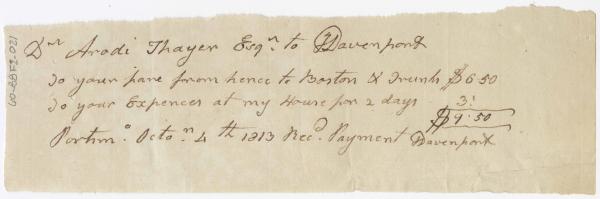 Dr Arodi Thayer Esqr. to Davenport
To your fare from hence to Boston & Trunk $6.50
To your Expences at my House for 2 days 3:
$9.50
Portsmo. Octor. 4th 1813 Recd. Payment Davenport